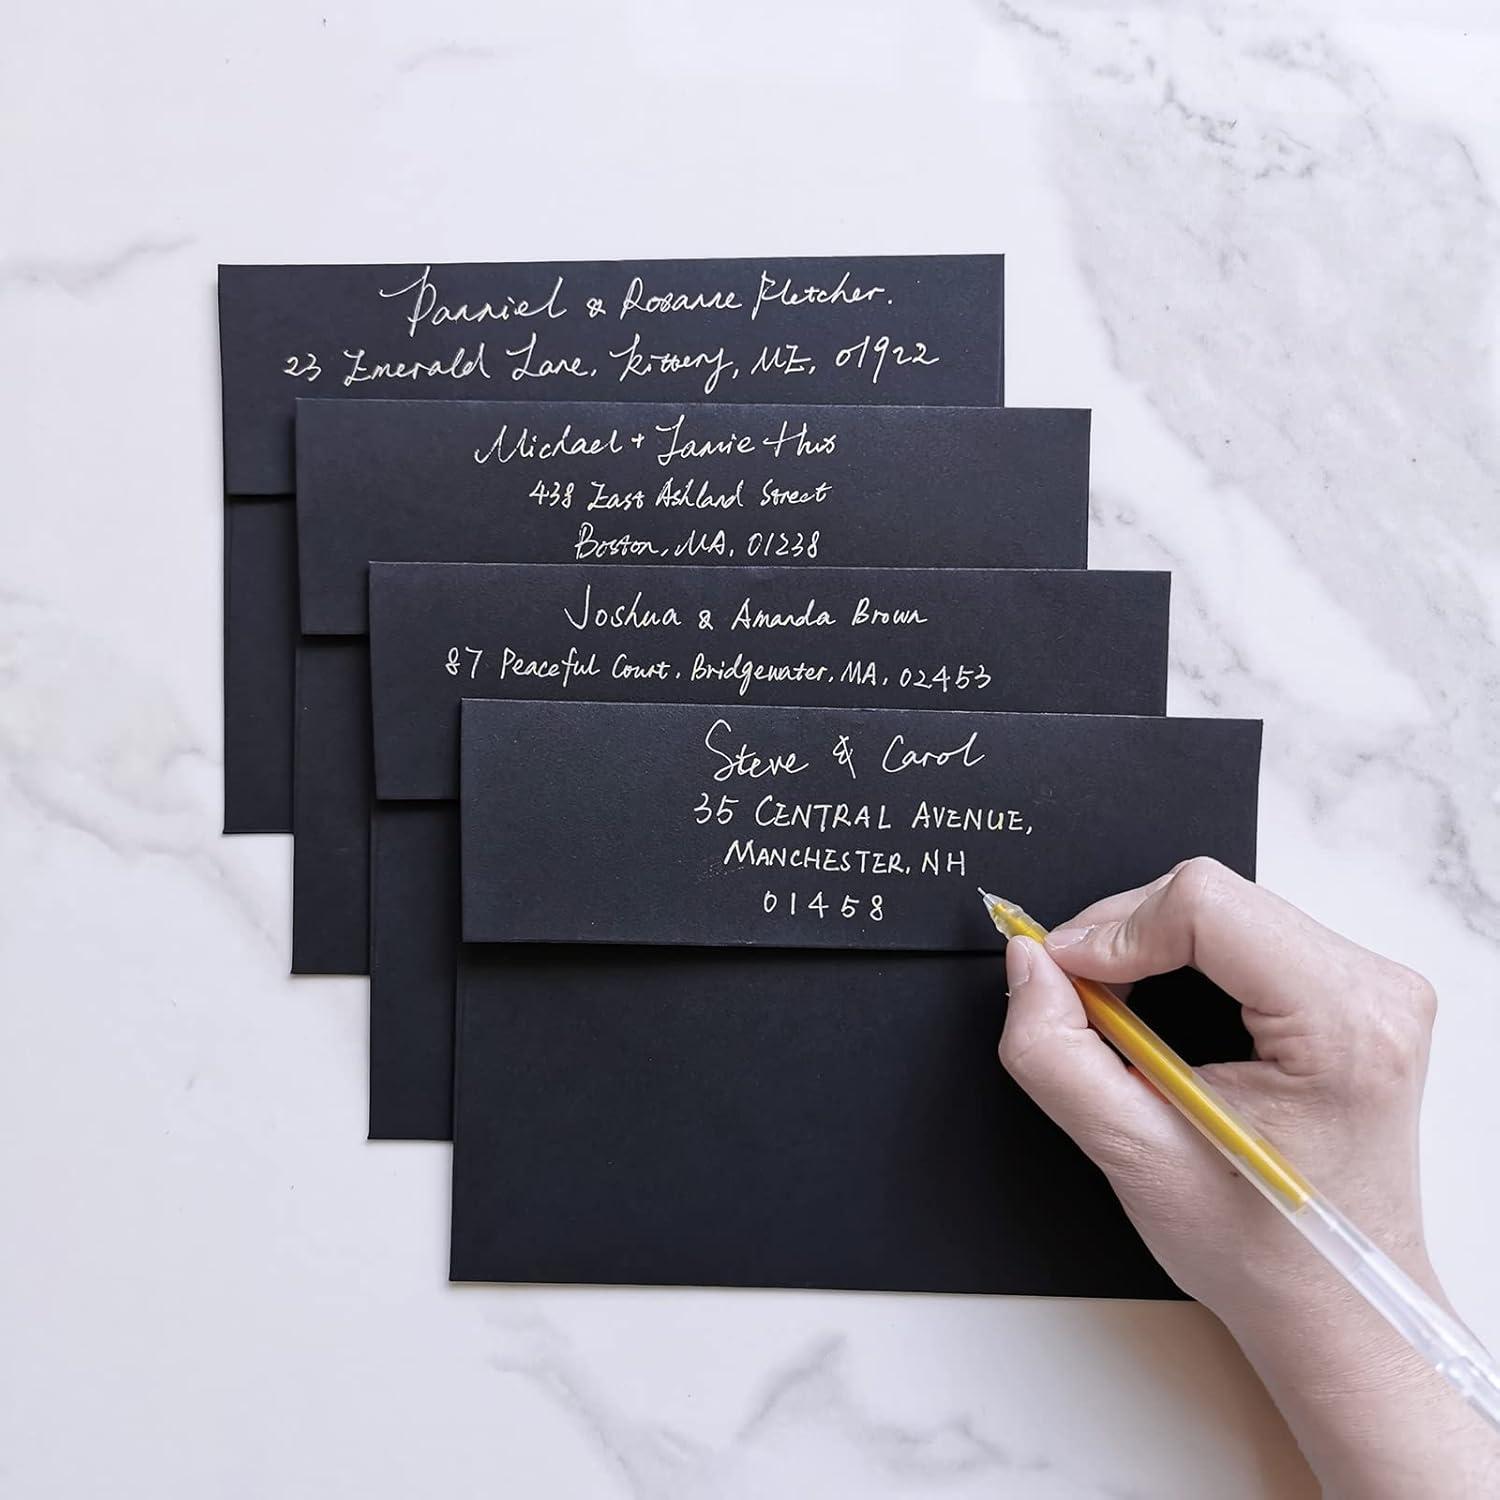 Danniel & Rosanne Fletcher.
23 Emerald Lane, Kittery, ME, 01922
Michael + Jamie
438 East Ashland Street
Boston, MA, 01238
Joshua & Amanda Brown
87 Peaceful Court, Bridgewater, MA, 02453
Steve & Carol
35 CENTRAL AVENUE,
MANCHESTER, NH
01458